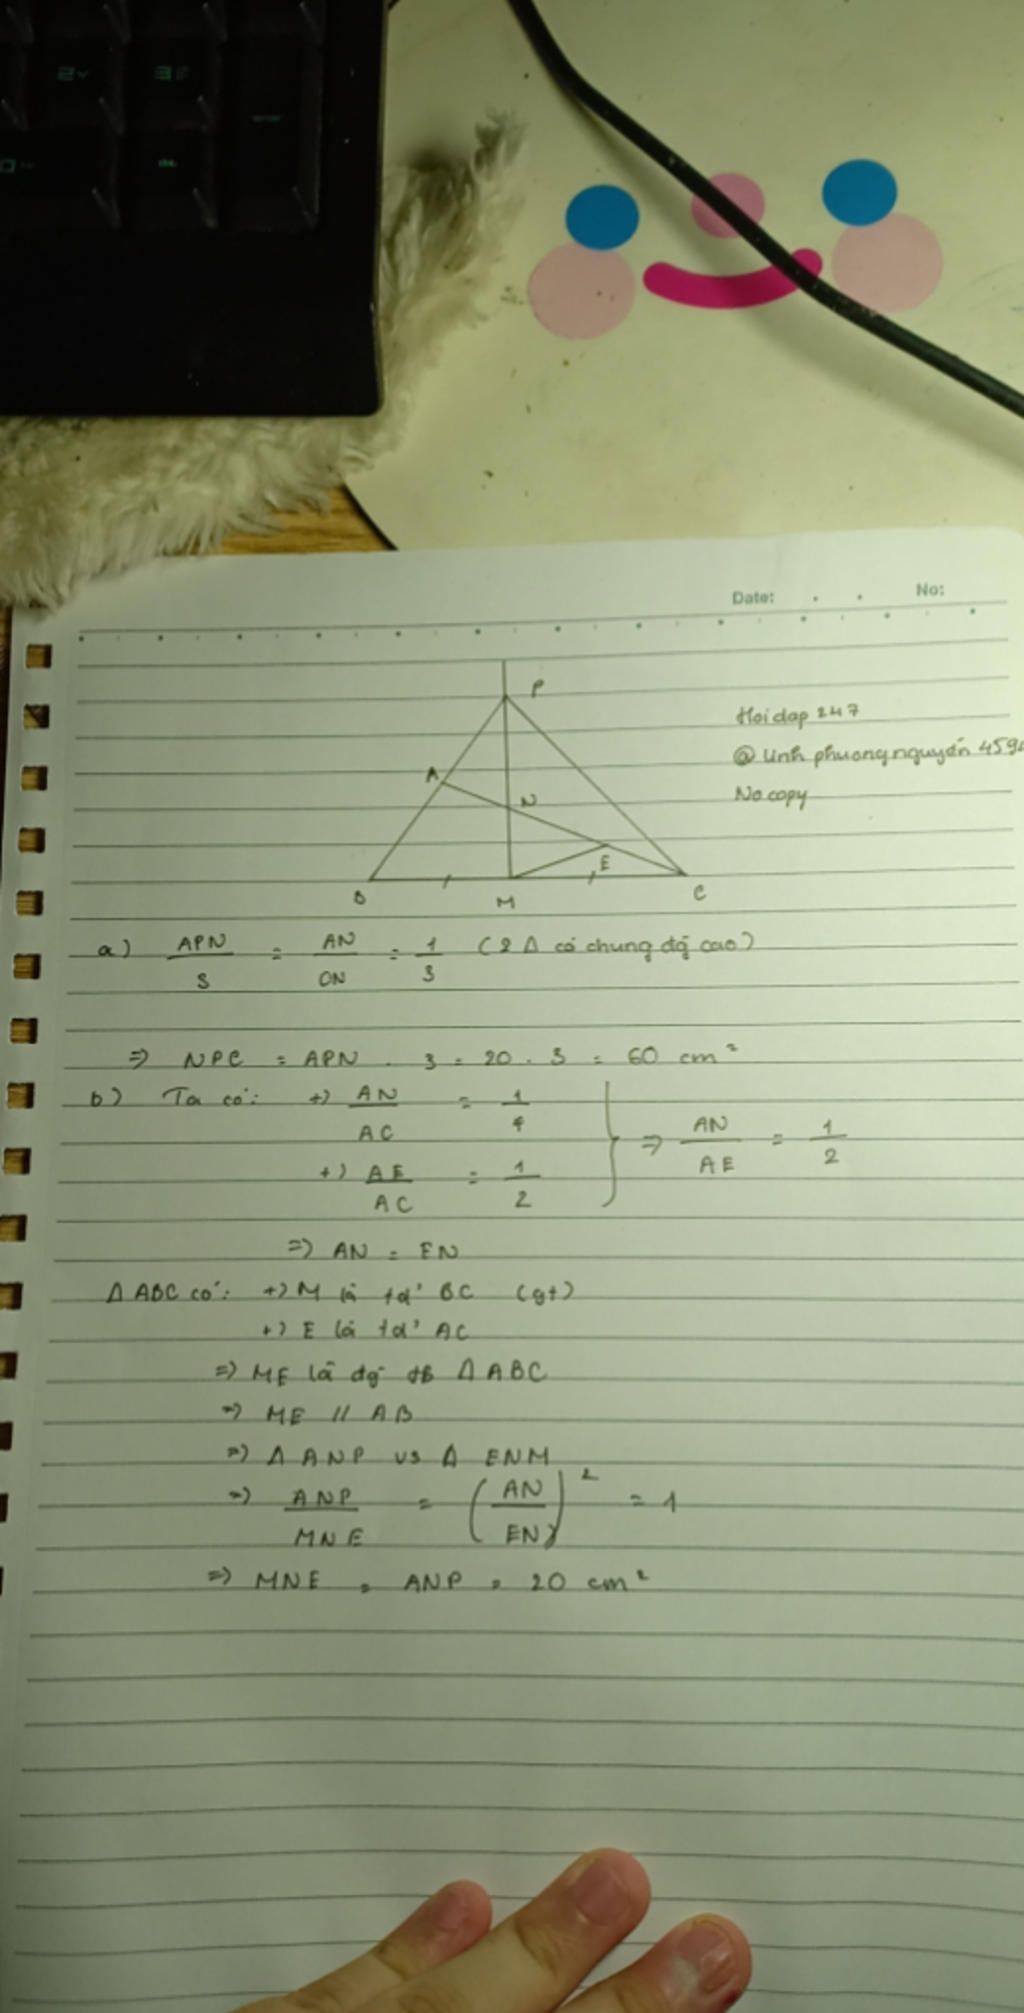 Date: . . No:
P
A
N
E
B M C
Hoidap 247
@ linh phuongnguyen 4594
No copy
a) APN / S = AN / CN = 1 / 3 (2 Δ có chung đg̃ cao)
=> NPC = APN . 3 = 20 . 3 = 60 cm²
b) Ta có: +) AN / AC = 1 / 4
+) AE / AC = 1 / 2 } => AN / AE = 1 / 2
=> AN = EN
Δ ABC có: +) M là tđ' BC (gt)
+) E là tđ' AC
=> ME là đg̃ tb Δ ABC
=> ME // AB
=> Δ ANP ᔕ Δ ENM
=> ANP / MNE = (AN / EN)² = 1
=> MNE = ANP = 20 cm²